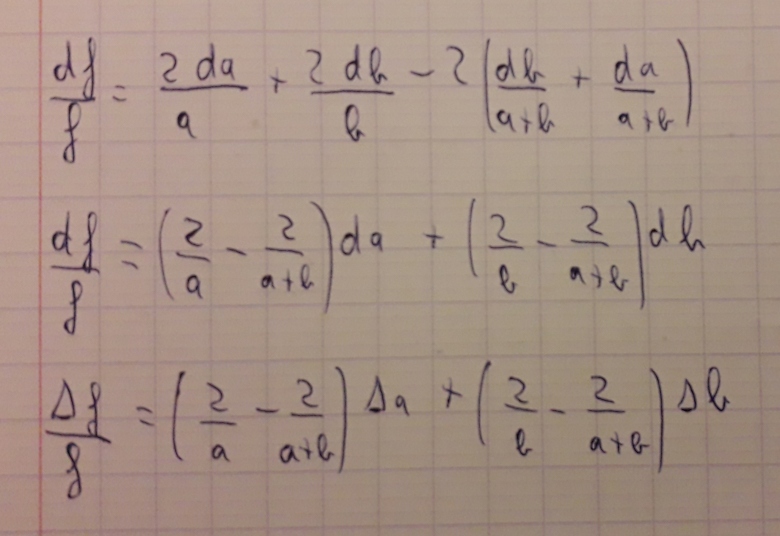 df/f = 2 da/a + 2 db/b − 2 (db/(a+b) + da/(a+b))
df/f = (2/a − 2/(a+b)) da + (2/b − 2/(a+b)) db
Δf/f = (2/a − 2/(a+b)) Δa + (2/b − 2/(a+b)) Δb